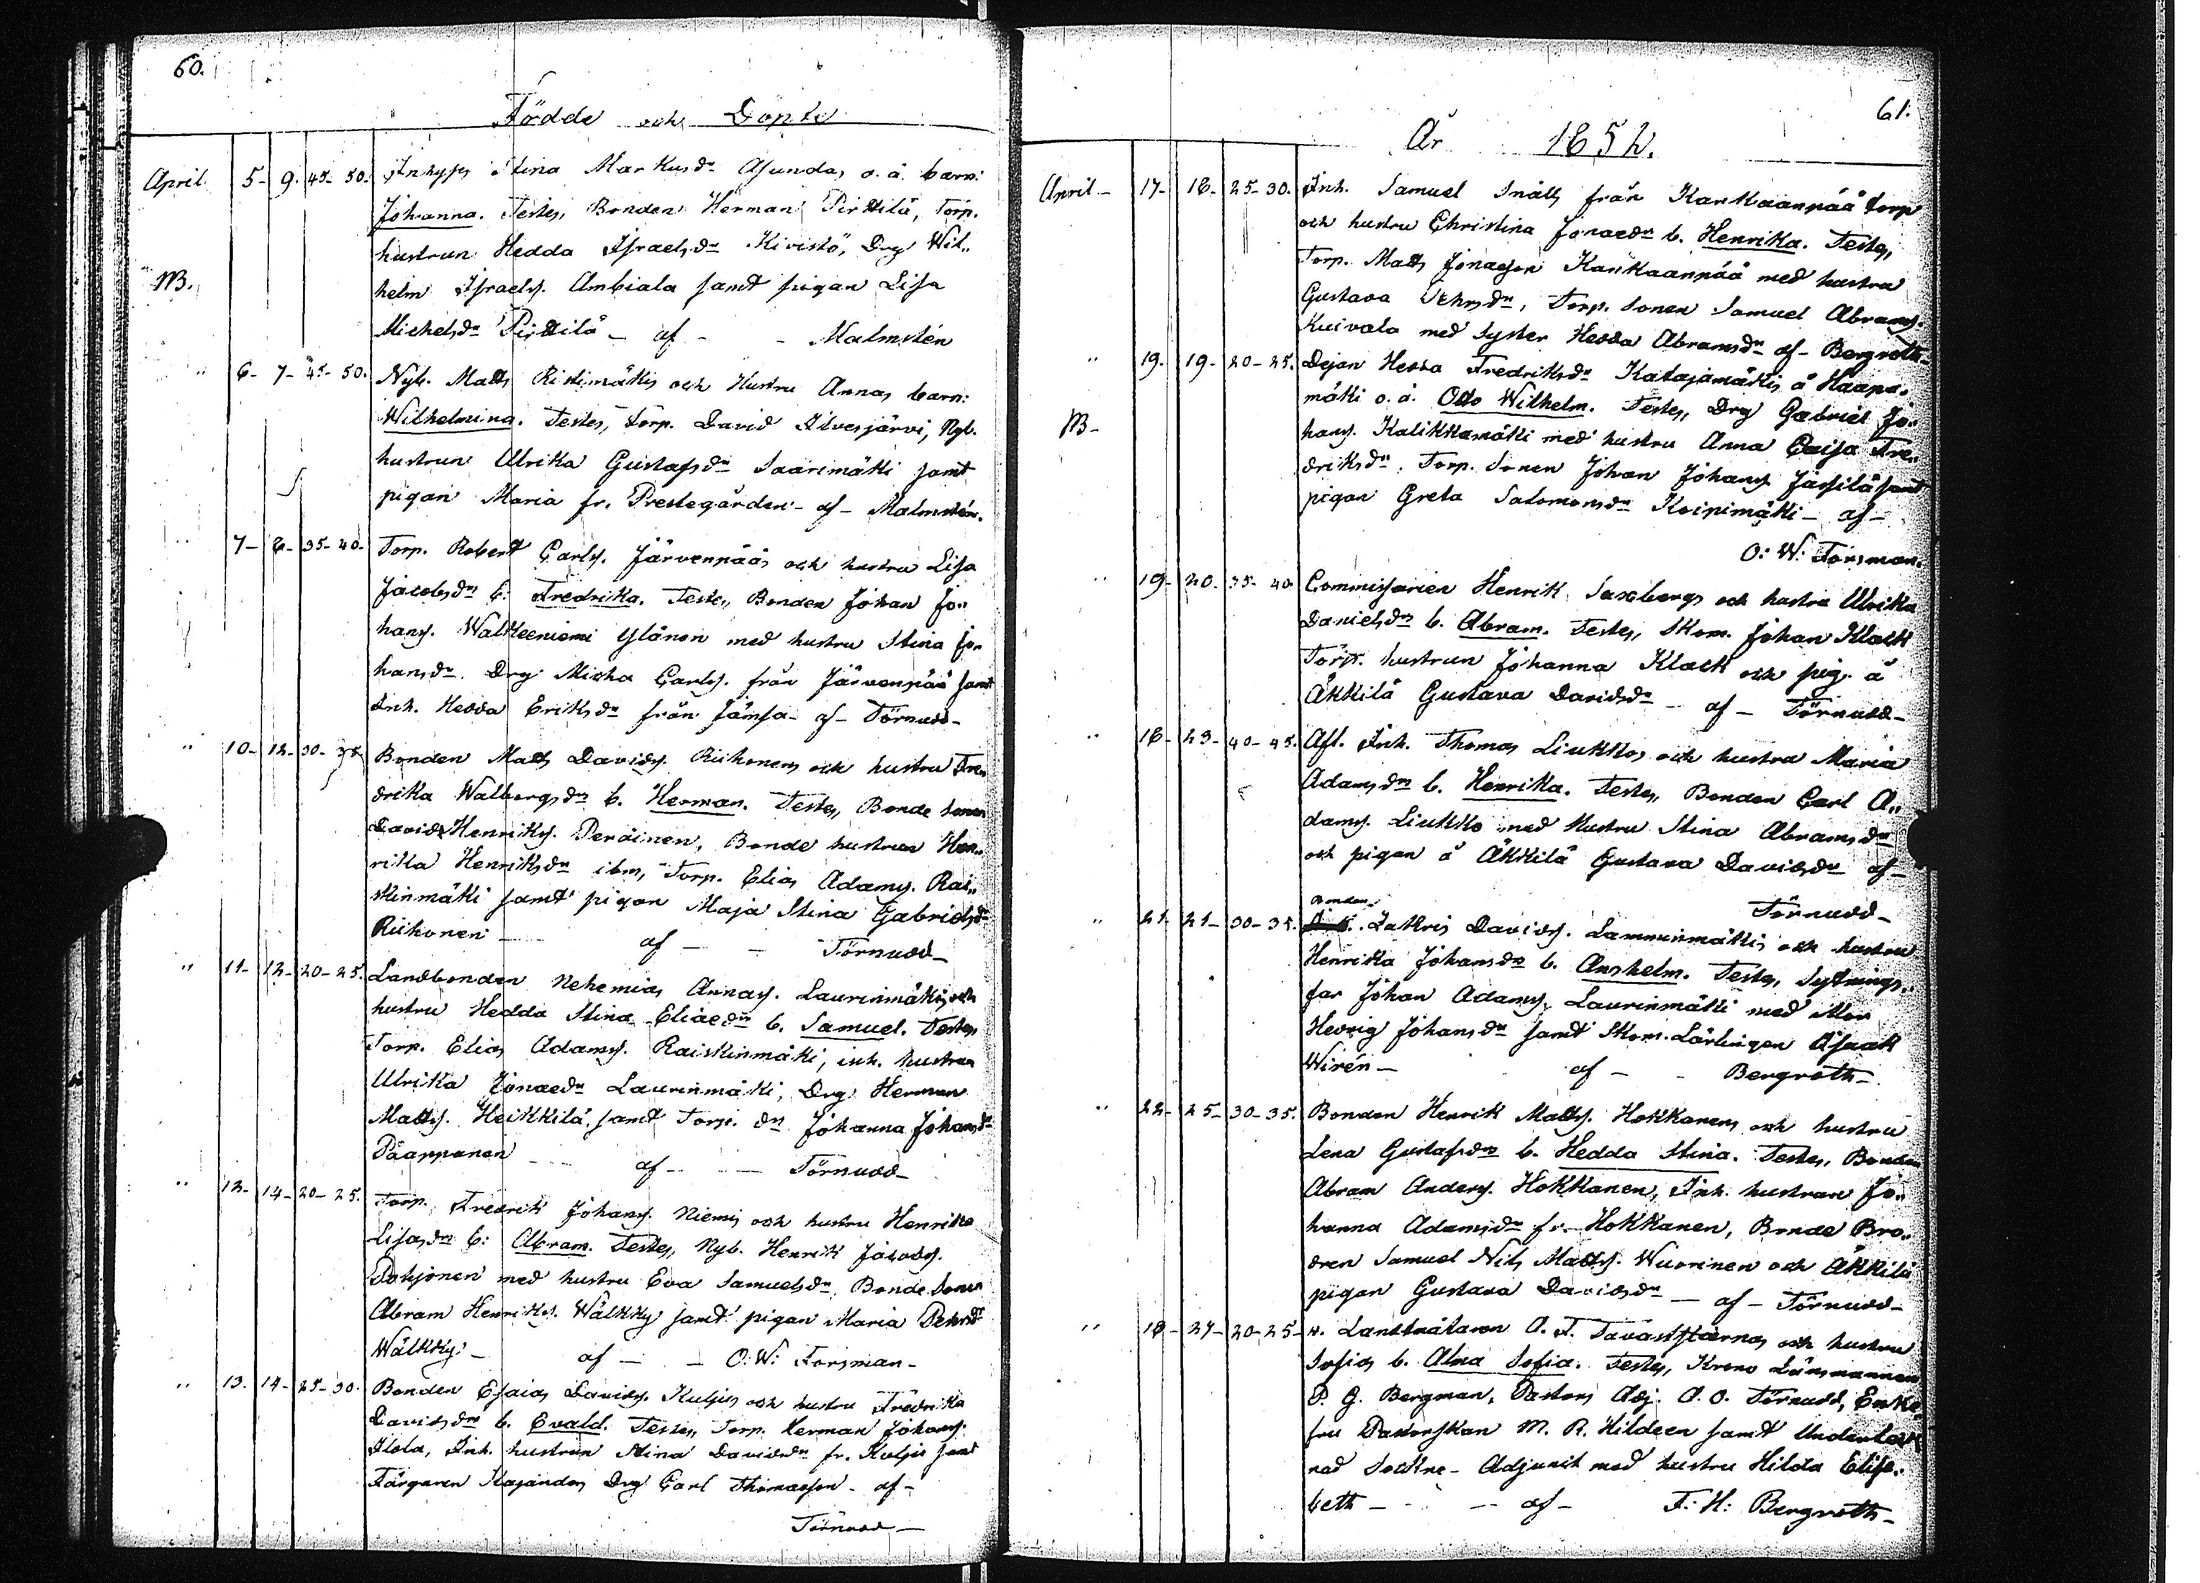 60.
Födde och Döpte
April 5- 9. 45- 50. Inhyses Stina Markusdr Asundas o. ä. barn:
Johanna. Testes, Bonden Herman Pirttilä, Torp.
hustrun Hedda Israelsdr Kivistö, Drg Wil„
M. helm Israels. Ambiala samt pigan Lisa
Michelsdr Pirttilä - af - - Malmstén
" 6- 7- 45- 50. Nyb. Matts Ristimäkis och Hustru Annas barn:
Wilhelmina. Testes, Torp. David Ilvesjärvi, Nyb.
hustrun Ulrika Gustafsdr Saarimäki samt
pigan Maria fr. Prestegården - af - Malmstén.
" 7- 8- 35- 40- Torp. Robert Carls. Järvenpääs och hustru Lisa
Jacobsdrs b: Fredrika. Testes, Bonden Johan Jo„
hans. Walkeeniemi Ylänen med hustru Stina Jo„
hansdr. Drg Micha Carls. från Järvenpää samt
Inh. Hedda Eriksdr från Jämsä - af - Törnudd-
" 10- 12- 30- 35 Bonden Matts Davids. Riihonens och hustru Fre„
drika Walborgsdrs b. Herman. Testes, Bonde sonen
David Henriks. Peräinen, Bonde hustrun Hen„
rika Henriksdr ibm, Torp. Elias Adams. Rai„
skinmäki samt pigan Maja Stina Gabrielsdr
Riihonen - af - - Törnudd-
" 11- 12- 20- 25. Landbonden Nehemias Annas. Laurinmäkis och
hustru Hedda Stina Eliaedrs b. Samuel. Testes,
Torp. Elias Adams. Raiskinmäki, inh. hustrun
Ulrika Jonaedr Laurinmäki, Drg Herman
Matts. Heikkilä, samt Torp. dn Johanna Johansdr
Pääppänen - af - - Törnudd-
" 12- 14- 20- 25. Torp. Fredrik Johans. Niemis och hustru Henrika
Lisasdrs b: Abram. Testes, Nyb. Henrik Jacobs.
Pohjonen med hustru Eva Samuelsdr, Bonde sonen
Abram Henriks. Wälkky samt pigan Maria
Wälkky: - af - - O: W: Forsman-
" 13. 14- 25- 30. Bonden Esaias Davids. Kuljus och hustru Fredrika
Davidsdrs b. Evald. Testes, Torp. Herman Johans.
Ilola, Inh. hustrun Stina Davidsdr fr. Kuljus samt
Färgaren Kajanders Drg Carl Thomasson - af -
Törnudd-
61.
År 1852.
April - 17- 18- 25- 30. Inh. Samuel Snälls från Kankaanpää torp
och hustru Christina Jonaedrs b. Henrika. Testes,
Torp. Matts Jonasson Kankaanpää med hustru
Gustava, Torp. Sonen Samuel Abrams.
Kuivala med Syster Hedda Abramsdr af - Bergroth-
" 19. 19- 20- 25. Dejan Hedda Fredriksdr Katajamäkis å Haapa„
mäki o. ä. Otto Wilhelm. Testes, Drg Gabriel Jo„
M- hans. Kalikkamäki med hustru Anna Caisa Fre„
driksdr. Torp. Sonen Johan Johans. Jässilä samt
pigan Greta Salomonsdr Koipimäki - af -
O: W: Forsman.
" 19- 20. 35- 40. Commissarien Henrik Saxbergs och hustru Ulrika
Danielsdrs b. Abram. Testes, Skom. Johan Klack
Torp. hustrun Johanna Klack och pig. å
Äkkilä Gustava Davidsdr - af - Törnudd-
" 18- 23- 40- 45. Afl. Inh. Thomas Liukkos och hustru Maria
Adamsdrs b. Henrika. Testes, Bonden Carl A„
dams. Liukko med hustru Stina Abramsdr
och pigan å Äkkilä Gustava Davidsdr af -
Törnudd-
Bonden
" 21. 21- 30- 35. Zakris Davids. Lamminmäkis och hustru
Henrika Johansdrs b. Anshelm. Testes, Sytnings„
far Johan Adams. Laurinmäki med Mor
Hedvig Johansdr samt Skom. Lärlingen Isaak
Wirén - af - - Bergroth-
" 22- 25- 30- 35. Bonden Henrik Matts. Hokkanens och hustru
Lena Gustafsdrs b. Hedda Stina. Testes, Bonden
Abram Anders. Hokkanen, Inh. hustrun Jo„
hanna Adamsdr fr. Hokkanen, Bonde Bro„
dren Samuel Nils Matts. Wuorinen och Äkkilä
pigan Gustava Davidsdr - af - Törnudd-
" 18- 27- 20- 25- v. Landtmätaren A. F. Tavaststjernas och hustru
Sofias b. Alma Sofia. Testes, Krono Länsmannen
P. G. Bergman, Pastors Adj. A. O. Törnudd, Enke„
fru Pastorskan M. R. Hildeen samt Underteck„
nad Sockne- Adjunkt med hustru Hilda Elisa„
beth - - af - F: H: Bergroth-